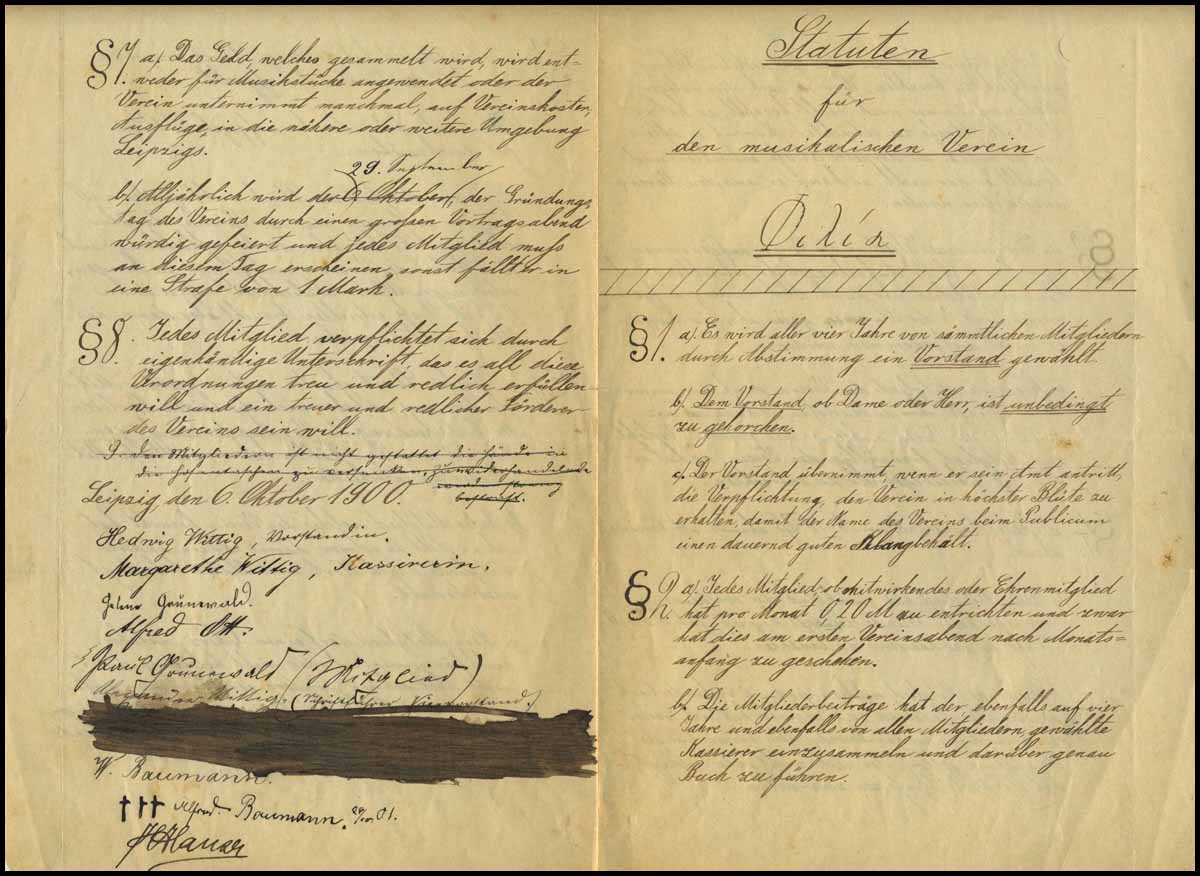 §7. a). Das Geld, welches gesammelt wird, wird ent=
weder für Musikstücke angewendet oder der
Verein unternimmt manchmal, auf Vereinskosten,
Ausflüge, in die nähere oder weitere Umgebung
Leipzigs.
29. September
b). Alljährlich wird der 6. Oktober, der Gründungs
tag des Vereins durch einen großen Vortragsabend
würdig gefeiert und jedes Mitglied muss
an diesem Tag erscheinen, sonst fällt er in
eine Strafe von 1 Mark.
§8. Jedes Mitglied verpflichtet sich durch
eigenhändige Unterschrift, das es all diese
Verordnungen treu und redlich erfüllen
will und ein treuer und redlicher Förderer
des Vereins sein will.
den Mitgliedern ist nicht gestattet die Hände in
die Hosentaschen zu versenken, Zuwiderhandelnde
bestraft.
Leipzig, den 6. Oktober 1900.
Hedwig Wittig, Vorstandin.
Margarethe Wittig, Kassirerin.
Grünewald.
Alfred Ott.
Paul Grünewald (Mitglied)
Wittig. (Schriftführer
W. Baumann.
††† Alfred. Baumann. 01.
Statuten
für
den musikalischen Verein
Φιλία
§1. a). Es wird aller vier Jahre von sämmtlichen Mitgliedern
durch Abstimmung ein Vorstand gewählt.
b). Dem Vorstand, ob Dame oder Herr, ist unbedingt
zu gehorchen.
c). Der Vorstand übernimmt, wenn er sein Amt antritt,
die Verpflichtung, den Verein in höchster Blüte zu
erhalten, damit der Name des Vereins beim Publicum
einen dauernd guten Klang behält.
§2. a). Jedes Mitglied, ob mitwirkendes oder Ehrenmitglied
hat pro Monat 0,20 M zu entrichten und zwar
hat dies am ersten Vereinsabend nach Monats=
anfang zu geschehen.
b). Die Mitgliederbeiträge hat der ebenfalls auf vier
Jahre und ebenfalls von allen Mitgliedern, gewählte
Kassierer einzusammeln und darüber genau
Buch zu führen.